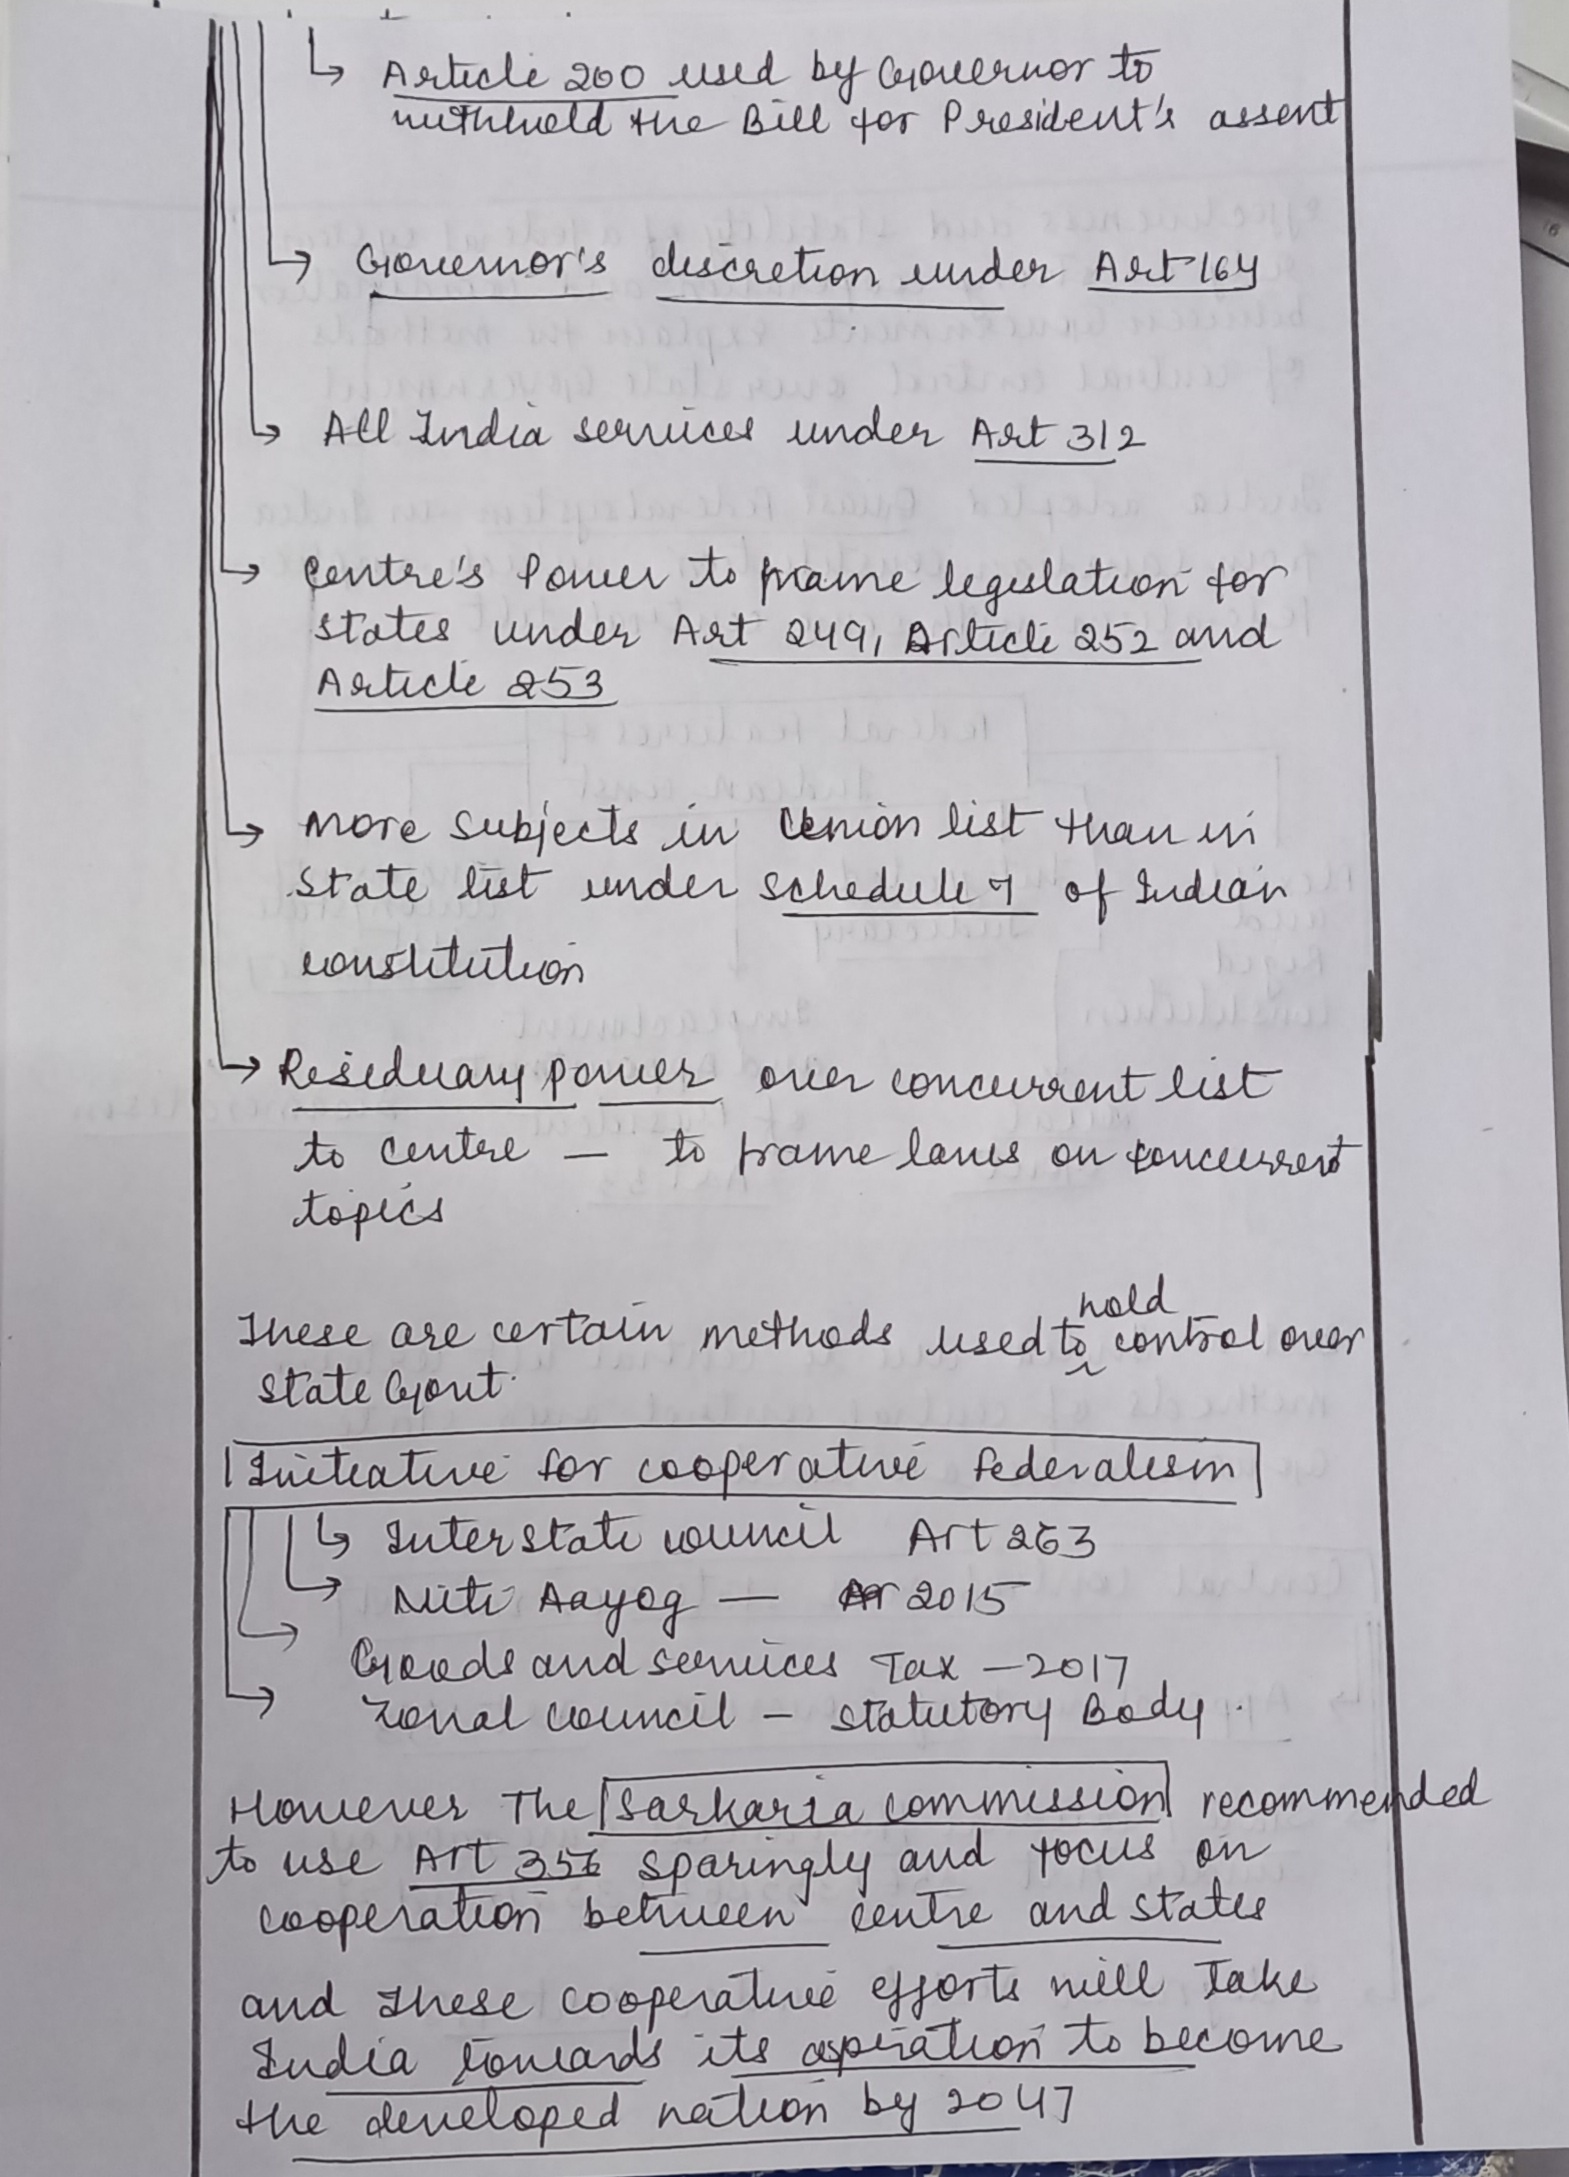 Article 200 used by Governor to
withhold the Bill for President's assent
Governor's discretion under Art 164
All India services under Art 312
Centre's Power to frame legislation for
states under Art 249, Article 252 and
Article 253
More Subjects in Union list than in
State list under Schedule 7 of Indian
constitution
Residuary power over concurrent list
to centre — to frame laws on concurrent
topics
These are certain methods used to hold control over
state Govt.
Initiative for cooperative federalism
Inter state council Art 263
Niti Aayog — 2015
Goods and services Tax — 2017
Zonal council — statutory Body.
However The Sarkaria commission recommended
to use Art 356 sparingly and focus on
cooperation between centre and states
and these cooperative efforts will take
India towards its aspiration to become
the developed nation by 2047